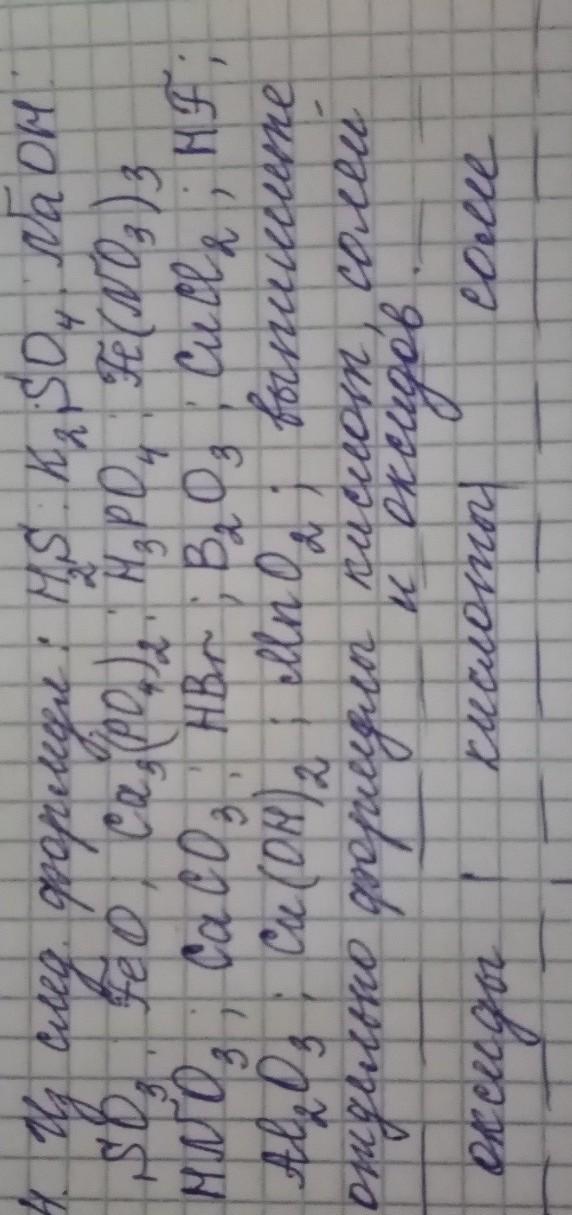 4. Из след. формул: H2S; K2SO4; NaOH;
SO3; FeO; Ca3(PO4)2; H3PO4; Fe(NO3)3
HNO3; CaCO3; HBr; B2O3; CuCl2; HF;
Al2O3; Cu(OH)2; MnO2; выпишите
отдельно формулы кислот, солей
и оксидов.
оксиды | кислоты | соли